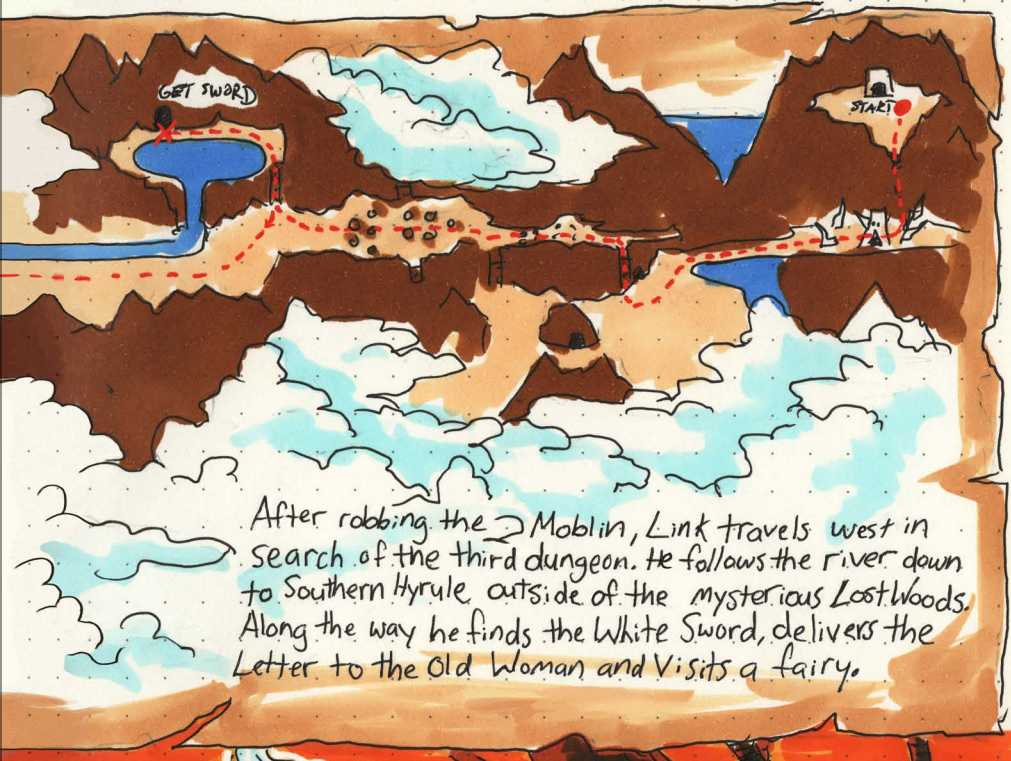 GET SWORD
START
After robbing the Moblin, Link travels west in
search of the third dungeon. He follows the river down
to Southern Hyrule outside of the mysterious Lost Woods.
Along the way he finds the White Sword, delivers the
Letter to the Old Woman and Visits a fairy.